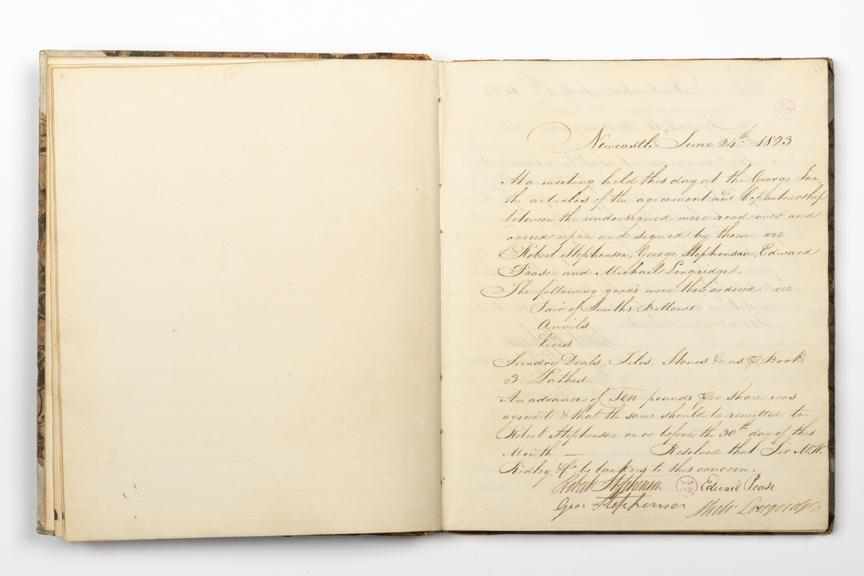 Newcastle June 24th 1823
At a meeting held this day at the George Inn
the articles of the agreement and Copartnership
between the undersigned were read over and
agreed upon and signed by them viz
Robert Stephenson, George Stephenson, Edward
Pease, and Michael Longridge.
The following goods were then ordered viz
Pair of Smiths Bellows
Anvils
Vices
Sundry Deals, Files, Stones &c as Books
3 Lathes
An advance of Ten pounds per Share was
agreed to & that the same should be remitted to
Robert Stephenson on or before the 30th day of this
Month — Resolved that Sir M.W.
Ridley & Co be bankers to this concern.
Robert Stephenson Edward Pease
Geo Stephenson Mich Longridge